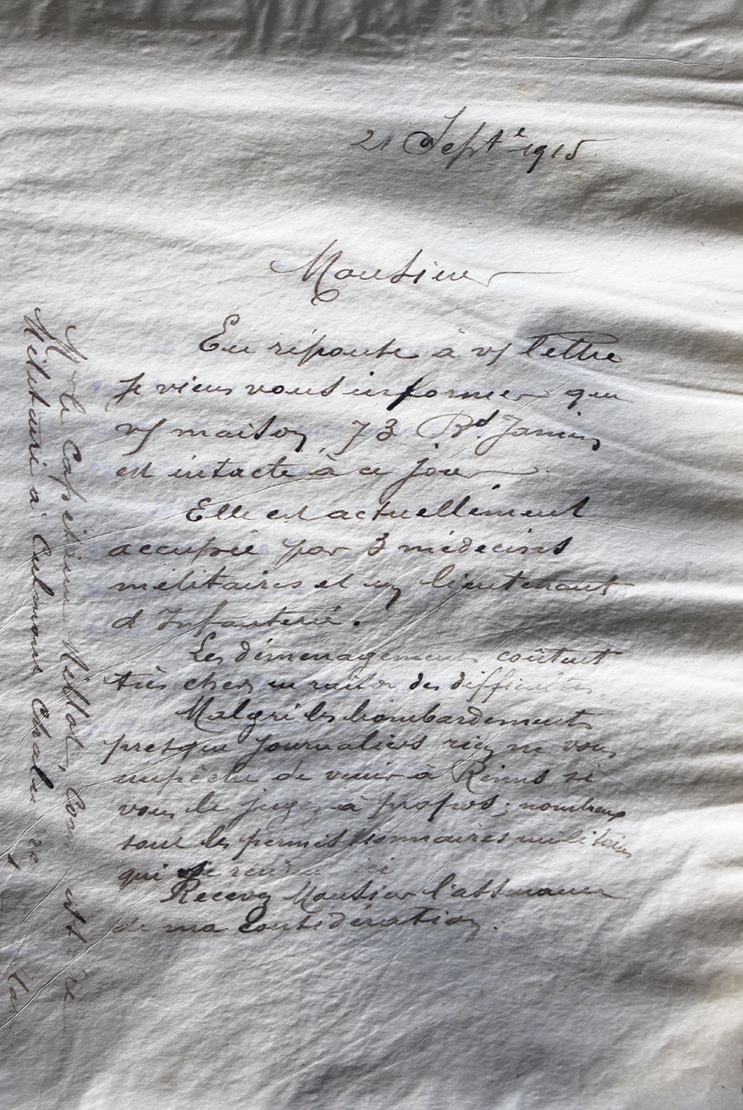 21 Septe 1915
Monsieur
En réponse à v/ lettre
je viens vous informer que
v/ maison 73 Bd Jamin
est intacte à ce jour
Elle est actuellement
occupée par 3 médecins
militaires et un lieutenant
d'Infanterie.
Les déménagements coûtent
très cher en raison des difficultés.
Malgré les bombardements
presque journaliers rien ne vous
empêche de venir à Reims si
vous le jugez à propos; nombreux
sont les permissionnaires militaires
qui se
Recevez Monsieur l'assurance
de ma considération.
Mr le Capitaine
Militaire à Culmont Chalindrey